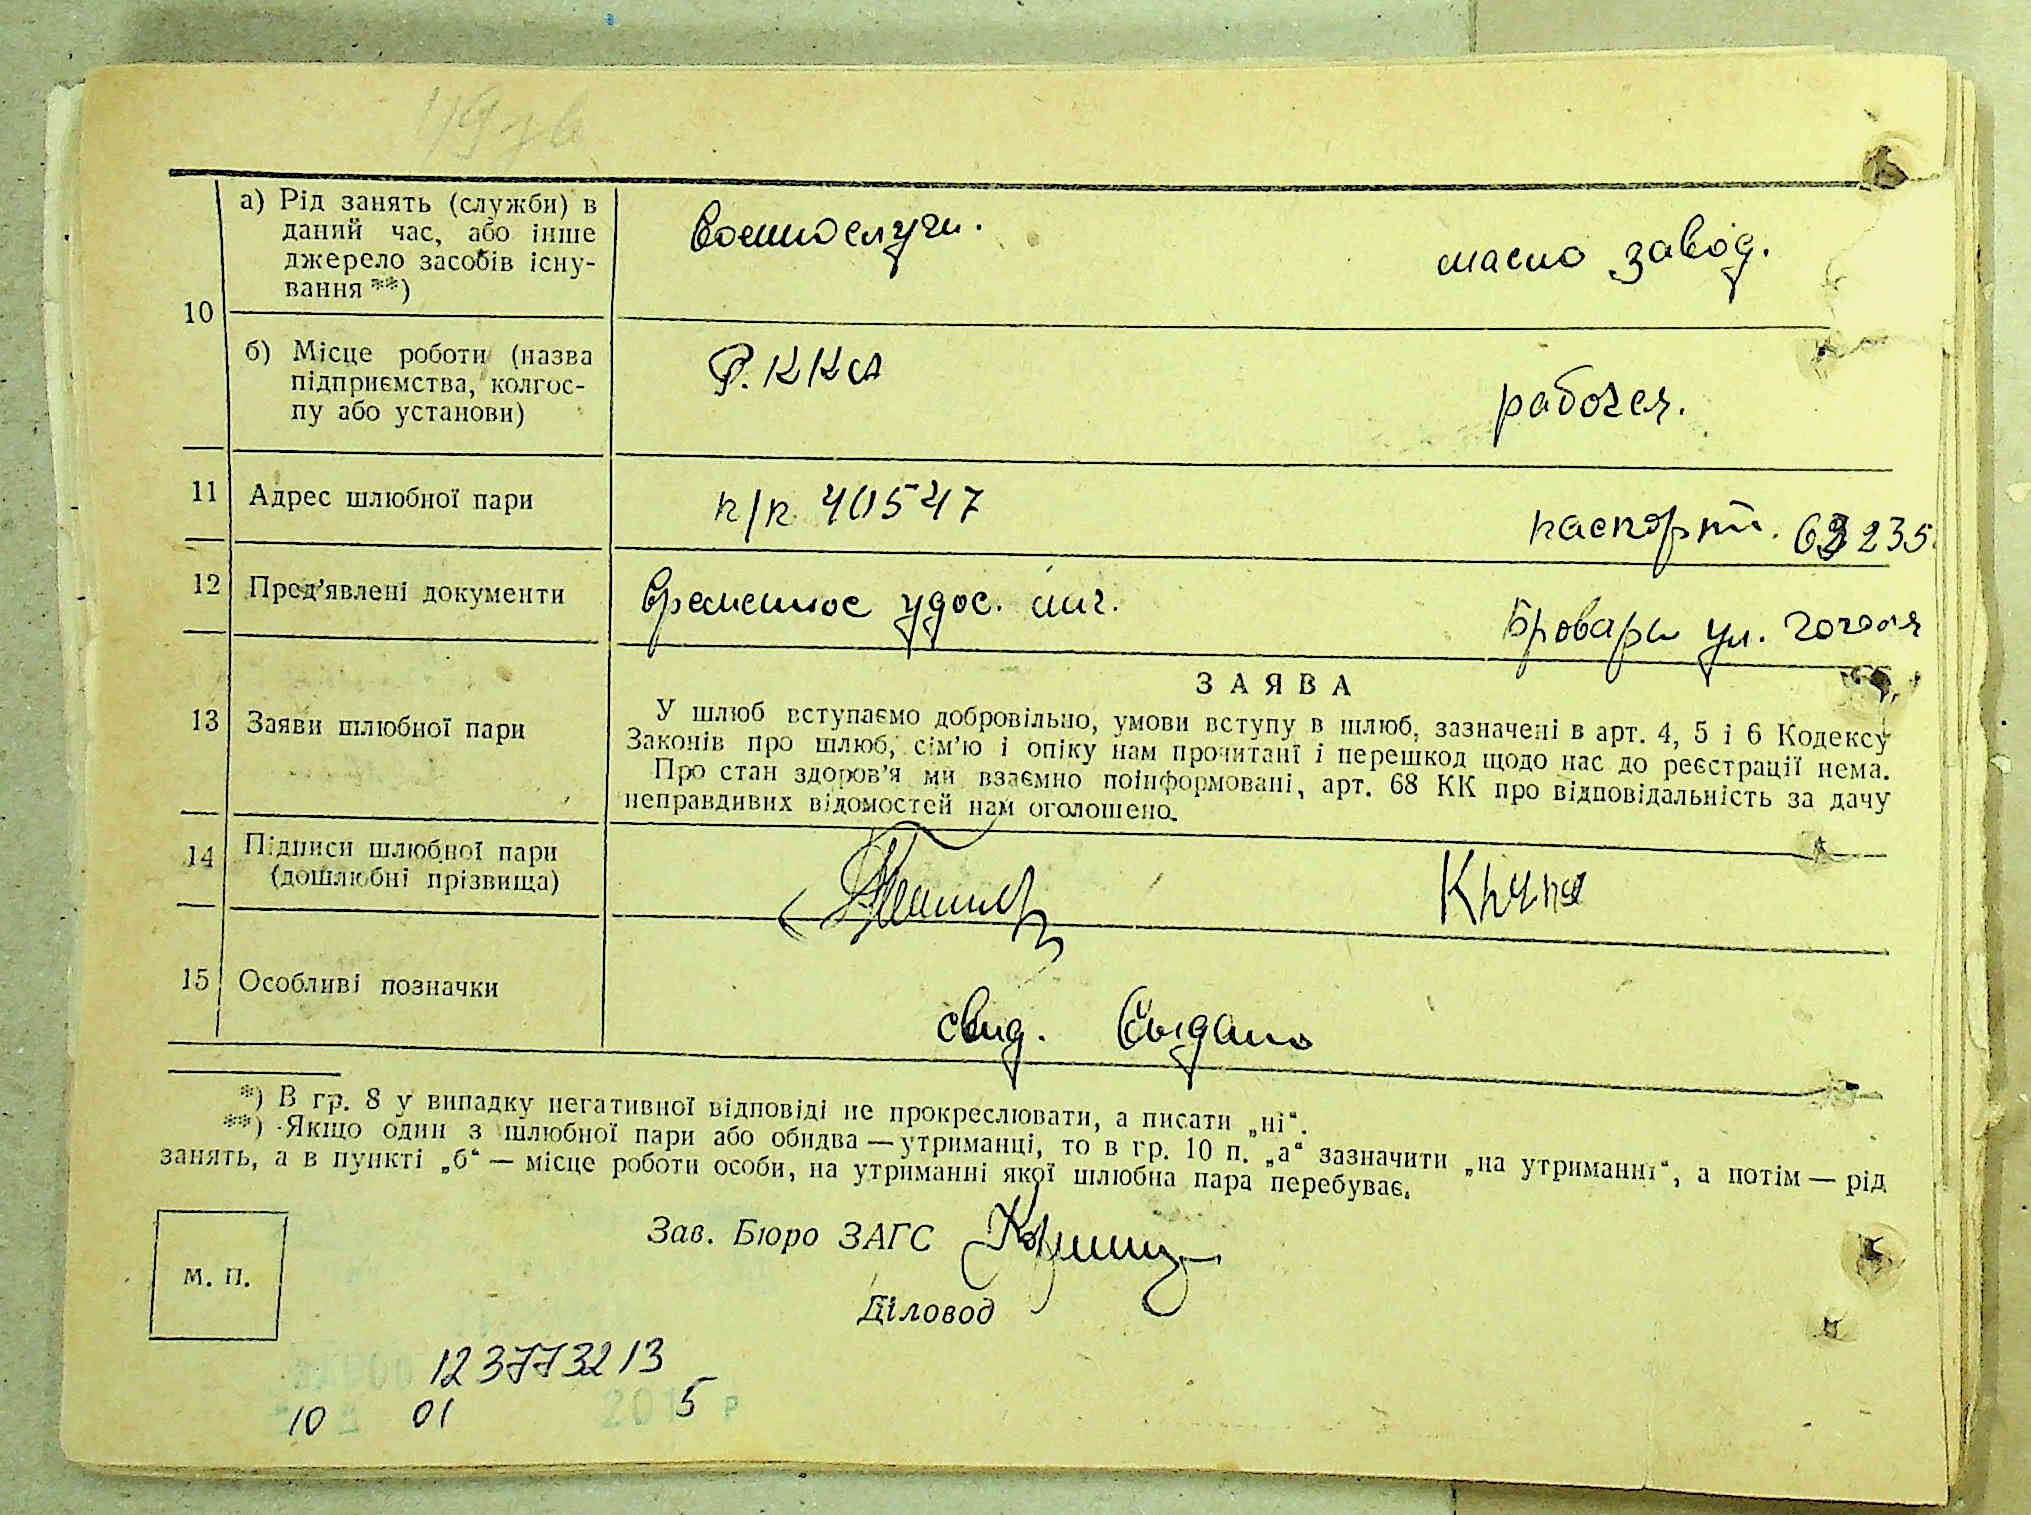 10
а) Рід занять (служби) в
даний час, або інше
джерело засобів існу-
вання **)
военнослуж.
масло завод.
б) Місце роботи (назва
підприємства, колгос-
пу або установи)
Р.ККА
рабочая.
11 Адрес шлюбної пари
п/п 40547
паспорт. 63235
12 Пред'явлені документи
временное удос. лич.
Бровары ул. Гоголя
13 Заяви шлюбної пари
ЗАЯВА
У шлюб вступаємо добровільно, умови вступу в шлюб, зазначені в арт. 4, 5 і 6 Кодексу
Законів про шлюб, сім'ю і опіку нам прочитані і перешкод щодо нас до реєстрації нема.
Про стан здоров'я ми взаємно поінформовані, арт. 68 КК про відповідальність за дачу
неправдивих відомостей нам оголошено.
14 Підписи шлюбної пари
(дошлюбні прізвища)
15 Особливі позначки
свид. выдано
*) В гр. 8 у випадку негативної відповіді не прокреслювати, а писати „ні“.
**) Якщо один з шлюбної пари або обидва — утриманці, то в гр. 10 п. „а“ зазначити „на утриманні“, а потім — рід
занять, а в пункті „б“ — місце роботи особи, на утриманні якої шлюбна пара перебуває.
Зав. Бюро ЗАГС
М. П.
Діловод
123773213
10 01 2015 р